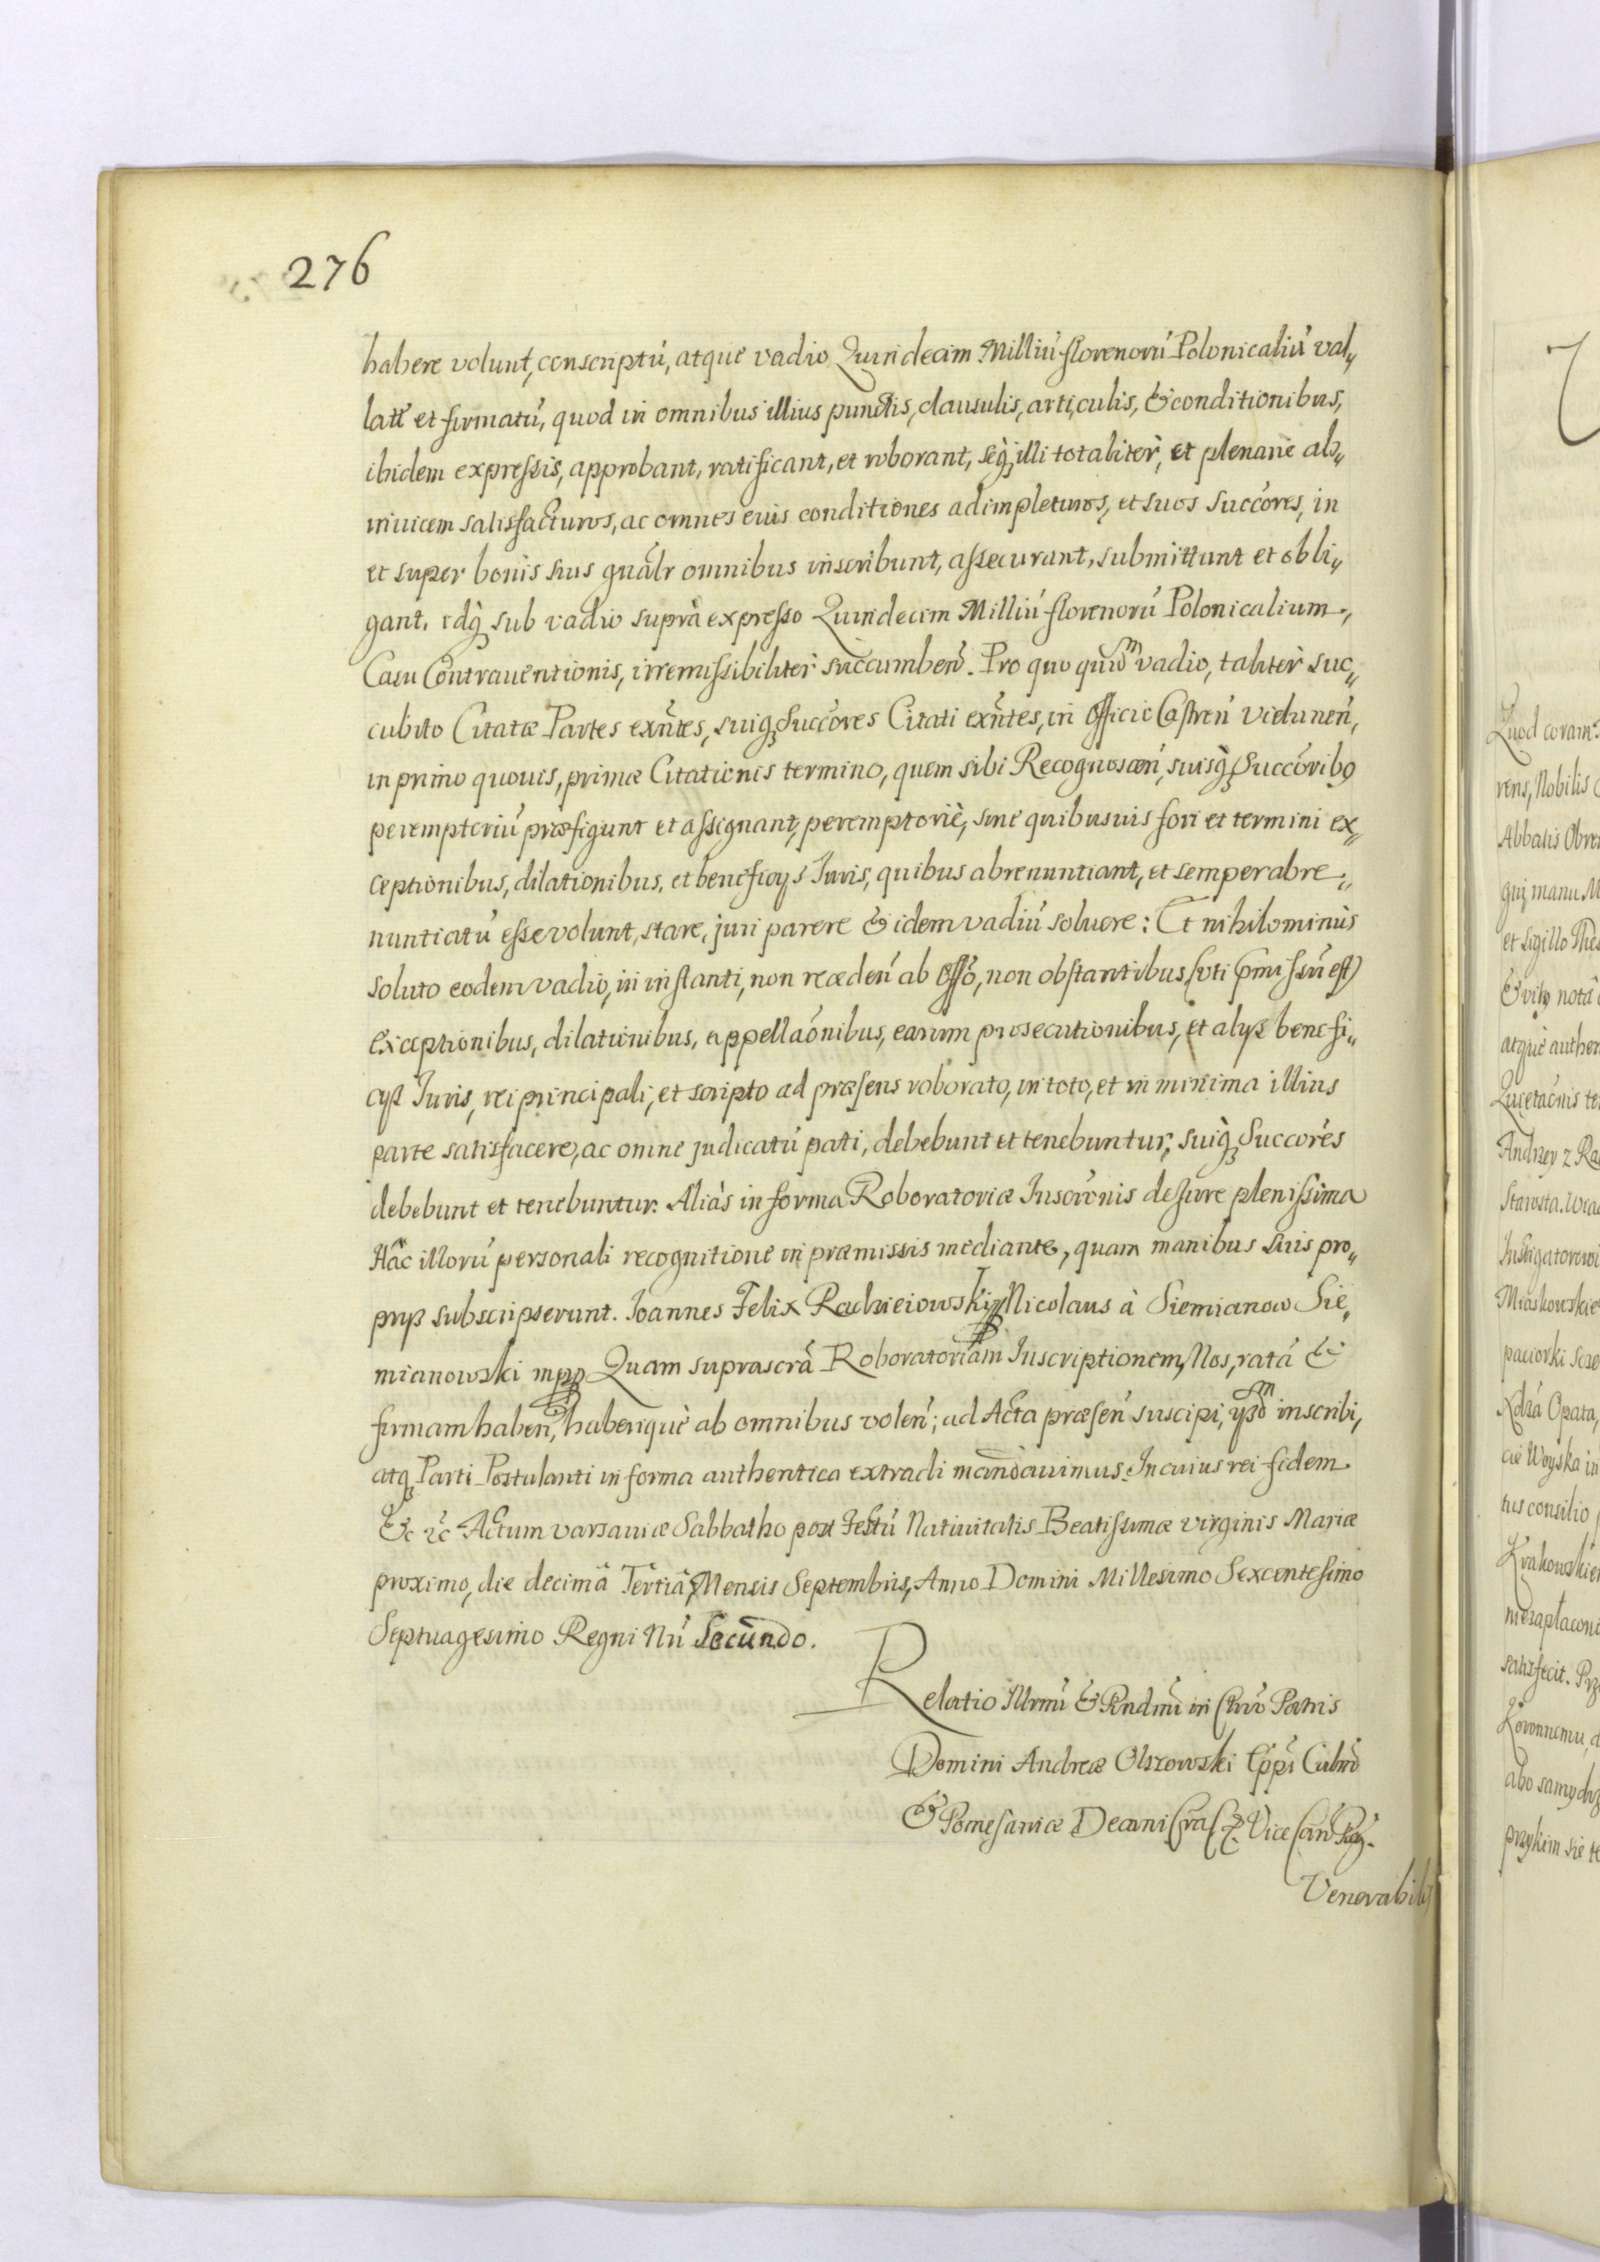 276
habere volunt, conscriptū, atque vadio Quindecim Milliū florenorū Polonicaliū val„
latū et firmatū, quod in omnibus illius punctis, clausulis, articulis, & conditionibus,
ibidem expressis, approbant, ratificant, et roborant, seq₃ illi totalitèr, et plenariè ab„
inuicem satisfacturos, ac omnes euis conditiones adimpleturos, et suos succōres, in
et super bonis suis gnãlr omnibus inscribunt, assecurant, submittunt et obli„
gant. idq₃ sub vadio suprà expresso Quindecim Milliū florenorū Polonicalium,
Casu Contrauentionis, irremissibilitèr succumbeñ. Pro quo quidm vadio, talitèr suc„
cubito Citatæ Partes exñtes, suiq₃ Succōres Citati exñtes, in Officio Castreñ Vieluneñ,
in primo quouis, primæ Citationis termino, quem sibi Recognosceñ, suisq₃ Succōribꝰ
peremptoriū præfigunt et assignant, peremptoriè, sine quibusuis fori et termini ex„
ceptionibus, dilationibus, et beneficijs Iuris, quibus abrenuntiant, et semper abre„
nuntiatū esse volunt, stare, juri parere & idem vadiū soluere: Et nihilominùs
soluto eodem vadio, in instanti, non recedeñ ab Offo, non obstantibus (uti pmissū est)
exceptionibus, dilationibus, appellaōnibus, earum prosecutionibus, et alijs benefi„
cijs Iuris, rei principali, et scripto ad præsens roborato, in toto, et in minima illius
parte satisfacere, ac omne judicatū pati, debebunt et tenebuntur, suiq₃ Succōres
debebunt et tenebuntur. Aliàs in forma Roboratoriæ Inscrōnis de Iure plenissima
Hâc illorū personali recognitione in præmissis mediante, quam manibus suis pro„
prijs subscripserunt. Ioannes Felix Radzieiowski Nicolaus à Siemianow Sie„
mianowski mpp Quam suprascrã Roboratoriam Inscriptionem, Nos, ratã &
firmam habeñ, haberiquè ab omnibus voleñ; ad Acta præseñ suscipi, ijsdm inscribi,
atq₃ Parti Postulanti in forma authentica extradi mandauimus. In cuius rei fidem
&c ꝛc Actum varsauiæ Sabbatho post Festū Natiuitatis Beatissimæ virginis Mariæ
proximo, die decimâ Tertiâ, Mensis Septembris, Anno Domini Millesimo Sexcentesimo
Septuagesimo Regni Nri Secundo.
Relatio Illrmi & Rndmi in Chrō Patris
Domini Andreæ Olszowski Eppi Culmeñ
& Pomesaniæ Decani Vice
Venerabilis